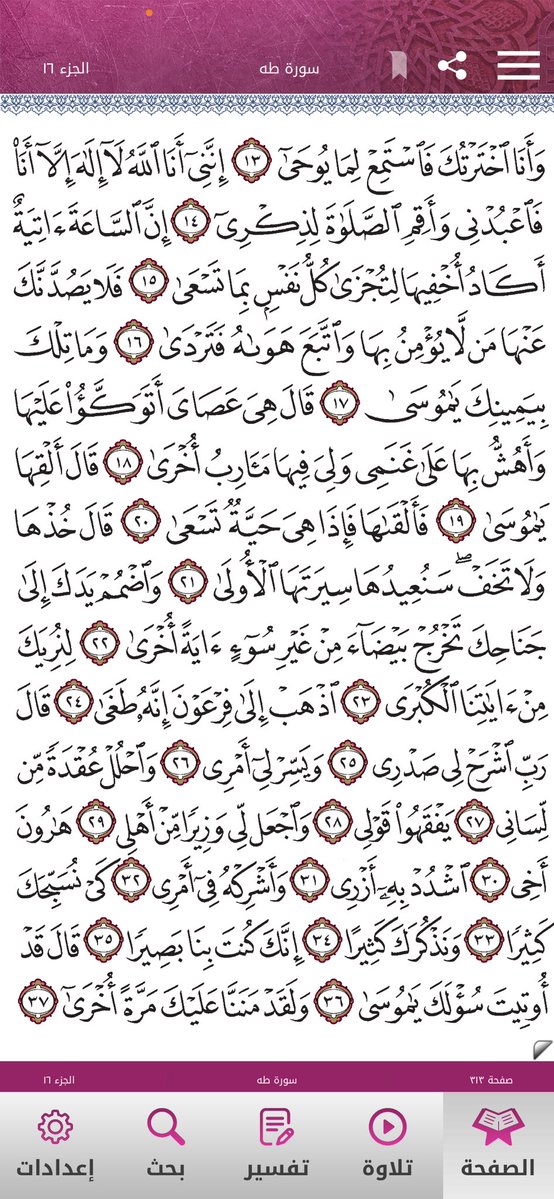 سورة طه الجزء ١٦
وَأَنَا ٱخْتَرْتُكَ فَٱسْتَمِعْ لِمَا يُوحَىٰٓ ١٣ إِنَّنِىٓ أَنَا ٱللَّهُ لَآ إِلَٰهَ إِلَّآ أَنَا۠
فَٱعْبُدْنِى وَأَقِمِ ٱلصَّلَوٰةَ لِذِكْرِىٓ ١٤ إِنَّ ٱلسَّاعَةَ ءَاتِيَةٌ
أَكَادُ أُخْفِيهَا لِتُجْزَىٰ كُلُّ نَفْسٍۭ بِمَا تَسْعَىٰ ١٥ فَلَا يَصُدَّنَّكَ
عَنْهَا مَن لَّا يُؤْمِنُ بِهَا وَٱتَّبَعَ هَوَىٰهُ فَتَرْدَىٰ ١٦ وَمَا تِلْكَ
بِيَمِينِكَ يَٰمُوسَىٰ ١٧ قَالَ هِىَ عَصَاىَ أَتَوَكَّؤُا۟ عَلَيْهَا
وَأَهُشُّ بِهَا عَلَىٰ غَنَمِى وَلِىَ فِيهَا مَـَٔارِبُ أُخْرَىٰ ١٨ قَالَ أَلْقِهَا
يَٰمُوسَىٰ ١٩ فَأَلْقَىٰهَا فَإِذَا هِىَ حَيَّةٌ تَسْعَىٰ ٢٠ قَالَ خُذْهَا
وَلَا تَخَفْ ۖ سَنُعِيدُهَا سِيرَتَهَا ٱلْأُولَىٰ ٢١ وَٱضْمُمْ يَدَكَ إِلَىٰ
جَنَاحِكَ تَخْرُجْ بَيْضَآءَ مِنْ غَيْرِ سُوٓءٍ ءَايَةً أُخْرَىٰ ٢٢ لِنُرِيَكَ
مِنْ ءَايَٰتِنَا ٱلْكُبْرَى ٢٣ ٱذْهَبْ إِلَىٰ فِرْعَوْنَ إِنَّهُۥ طَغَىٰ ٢٤ قَالَ
رَبِّ ٱشْرَحْ لِى صَدْرِى ٢٥ وَيَسِّرْ لِىٓ أَمْرِى ٢٦ وَٱحْلُلْ عُقْدَةً مِّن
لِّسَانِى ٢٧ يَفْقَهُوا۟ قَوْلِى ٢٨ وَٱجْعَل لِّى وَزِيرًا مِّنْ أَهْلِى ٢٩ هَٰرُونَ
أَخِى ٣٠ ٱشْدُدْ بِهِۦٓ أَزْرِى ٣١ وَأَشْرِكْهُ فِىٓ أَمْرِى ٣٢ كَىْ نُسَبِّحَكَ
كَثِيرًا ٣٣ وَنَذْكُرَكَ كَثِيرًا ٣٤ إِنَّكَ كُنتَ بِنَا بَصِيرًا ٣٥ قَالَ قَدْ
أُوتِيتَ سُؤْلَكَ يَٰمُوسَىٰ ٣٦ وَلَقَدْ مَنَنَّا عَلَيْكَ مَرَّةً أُخْرَىٰٓ ٣٧
صفحة ٣١٣ سورة طه الجزء ١٦
الصفحة تلاوة تفسير بحث إعدادات